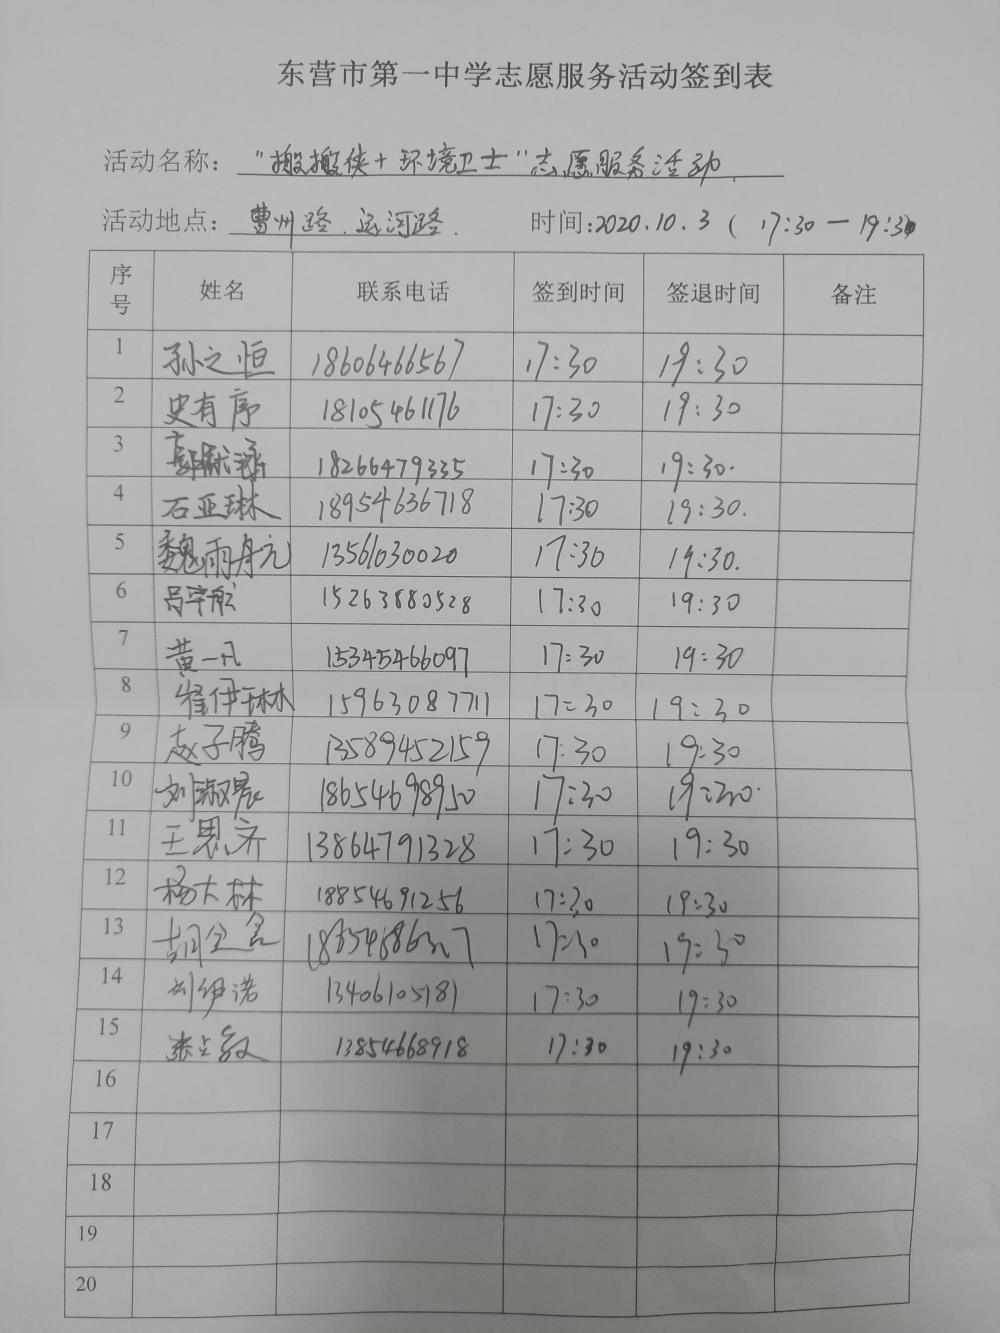 东营市第一中学志愿服务活动签到表
活动名称：“搬搬侠+环境卫士”志愿服务活动.
活动地点：曹州路、运河路. 时间:2020.10.3 ( 17:30 — 19:30)
序号 姓名 联系电话 签到时间 签退时间 备注
1 孙之恒 18606466567 17:30 19:30
2 史有序 18105461176 17:30 19:30
3 18266479335 17:30 19:30.
4 石亚琳 18954636718 17:30 19:30.
5 魏雨舟元 13561030020 17:30 19:30.
6 吕宇航 15263880528 17:30 19:30
7 黄一凡 15345466097 17:30 19:30
8 崔伊琳 15963087711 17:30 19:30
9 赵子腾 13589452159 17:30 19:30
10 刘淑晨 18654698950 17:30 19:30.
11 王思齐 13864791328 17:30 19:30
12 杨大林 18854691256 17:30 19:30
13 17:30 19:30
14 刘伊诺 13406105181 17:30 19:30
15 13854668918 17:30 19:30
16
17
18
19
20